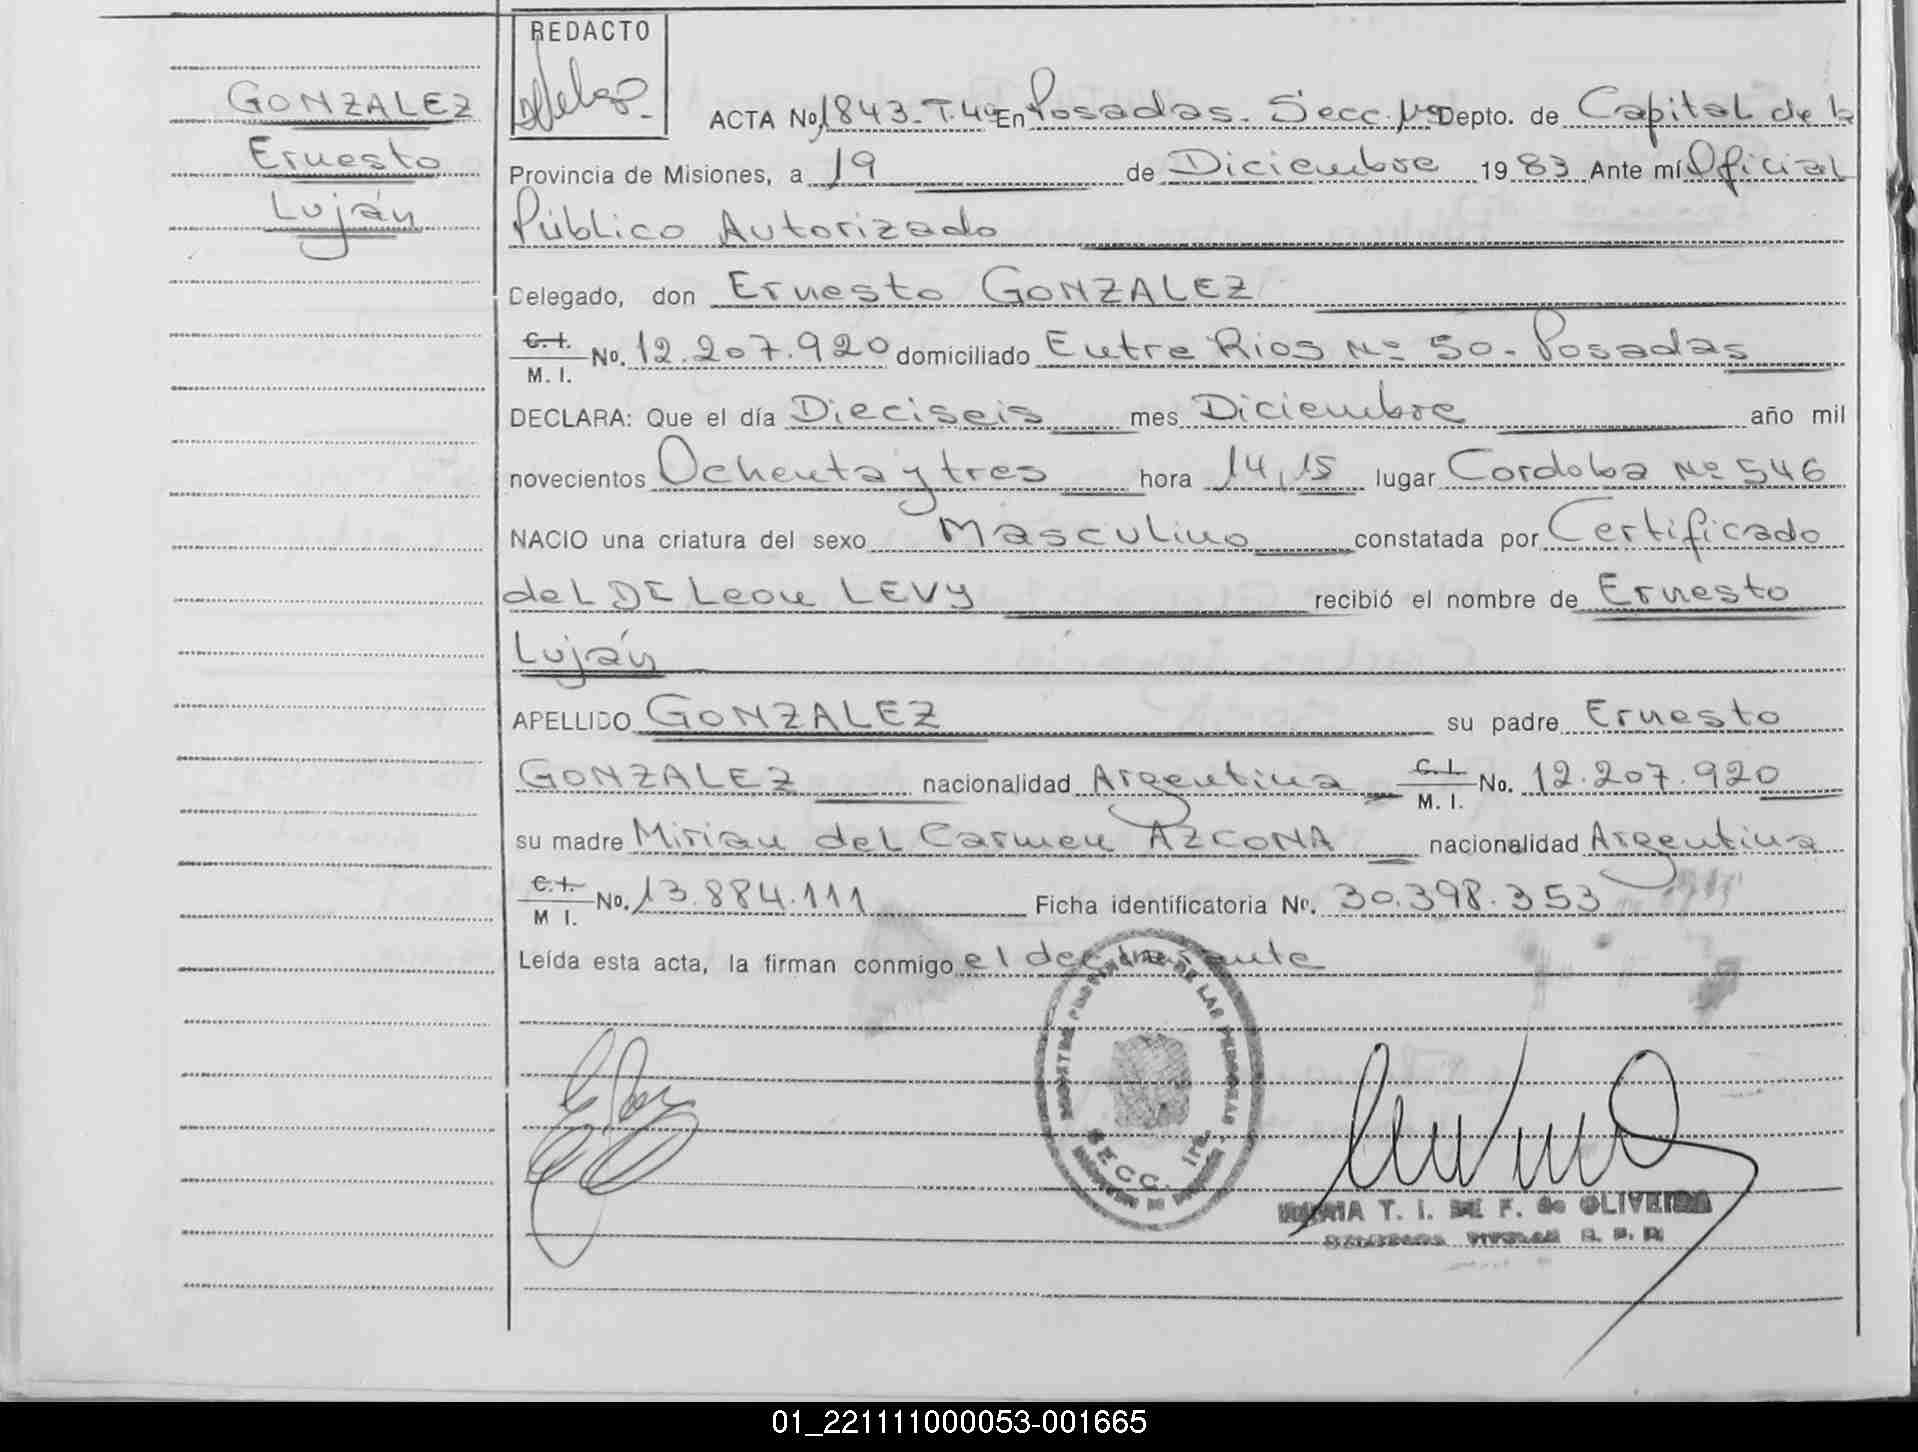 REDACTO
GONZALEZ
Ernesto
Luján
ACTA No. 1843-T.4º En Posadas. Secc. 1ª Depto. de Capital de la
Provincia de Misiones, a 19 de Diciembre 1983 Ante mí Oficial
Público Autorizado
Delegado, don Ernesto GONZALEZ
C.I.
M. I. No. 12.207.920 domiciliado Entre Rios Nº 50 - Posadas
DECLARA: Que el día Dieciseis mes Diciembre año mil
novecientos Ochenta y tres hora 14,15 lugar Cordoba Nº 546
NACIO una criatura del sexo Masculino constatada por Certificado
del DR Leon LEVY recibió el nombre de Ernesto
Luján
APELLIDO GONZALEZ su padre Ernesto
GONZALEZ nacionalidad Argentina C.I.
M. I. No. 12.207.920
su madre Mirian del Carmen AZCONA nacionalidad Argentina
C.I.
M I. No. 13.884.111 Ficha identificatoria No. 30.398.353
Leída esta acta, la firman conmigo el declarante
DE LAS PERSONAS
SECC. 1ra.
MARIA T. I. DE F. de OLIVEIRA
01_221111000053-001665